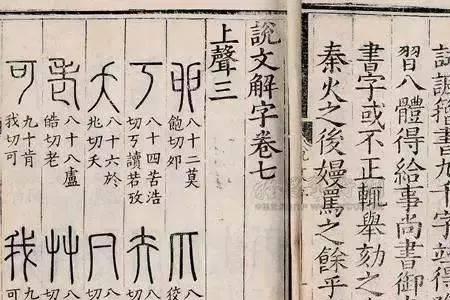 諷籀書九千字並得
習八體得給事尚書御
書字或不正輒舉劾之
秦火之後嫚罵之餘乎
說文解字卷七
上聲三
卯
八十二莫
飽切卯
丂
八十四苦浩
切丂讀若攷
夭
八十六於
兆切夭
老
八十八盧
皓切老
可
九十肯
我切可